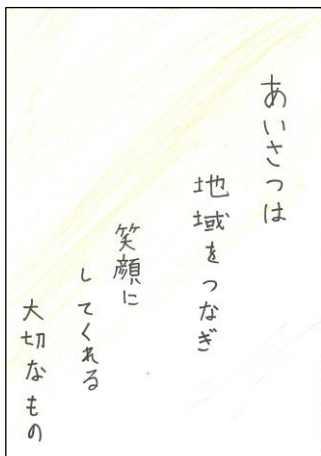 あいさつは
地域をつなぎ
笑顔に
してくれる
大切なもの